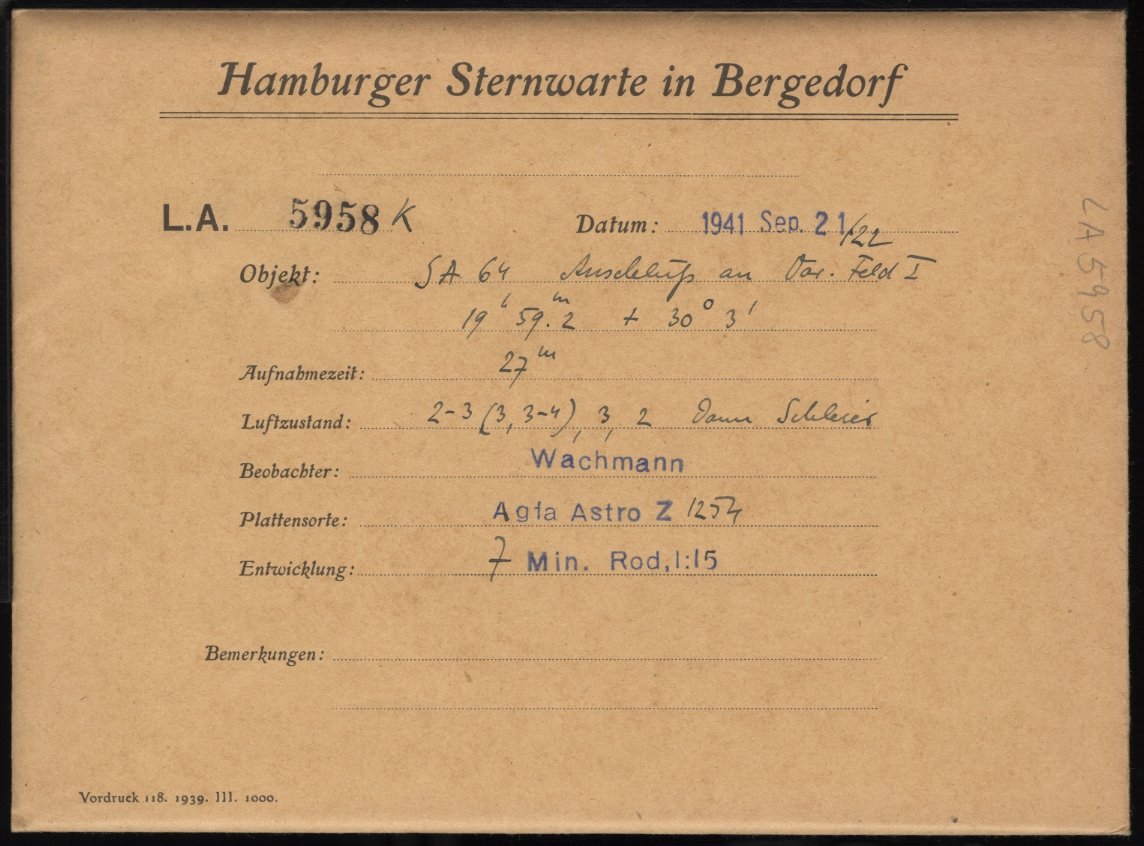 Hamburger Sternwarte in Bergedorf
L.A. 5958 K Datum: 1941 Sep. 21/22
Objekt: SA 64 Anschluß an Var. Feld I
19ʰ 59.ᵐ2 + 30° 3'
Aufnahmezeit: 27ᵐ
Luftzustand: 2-3 (3, 3-4), 3, 2 dann Schleier
Beobachter: Wachmann
Plattensorte: Agfa Astro Z 1254
Entwicklung: 7 Min. Rod, 1:15
Bemerkungen:
Vordruck 118. 1939. III. 1000.
LA 5958